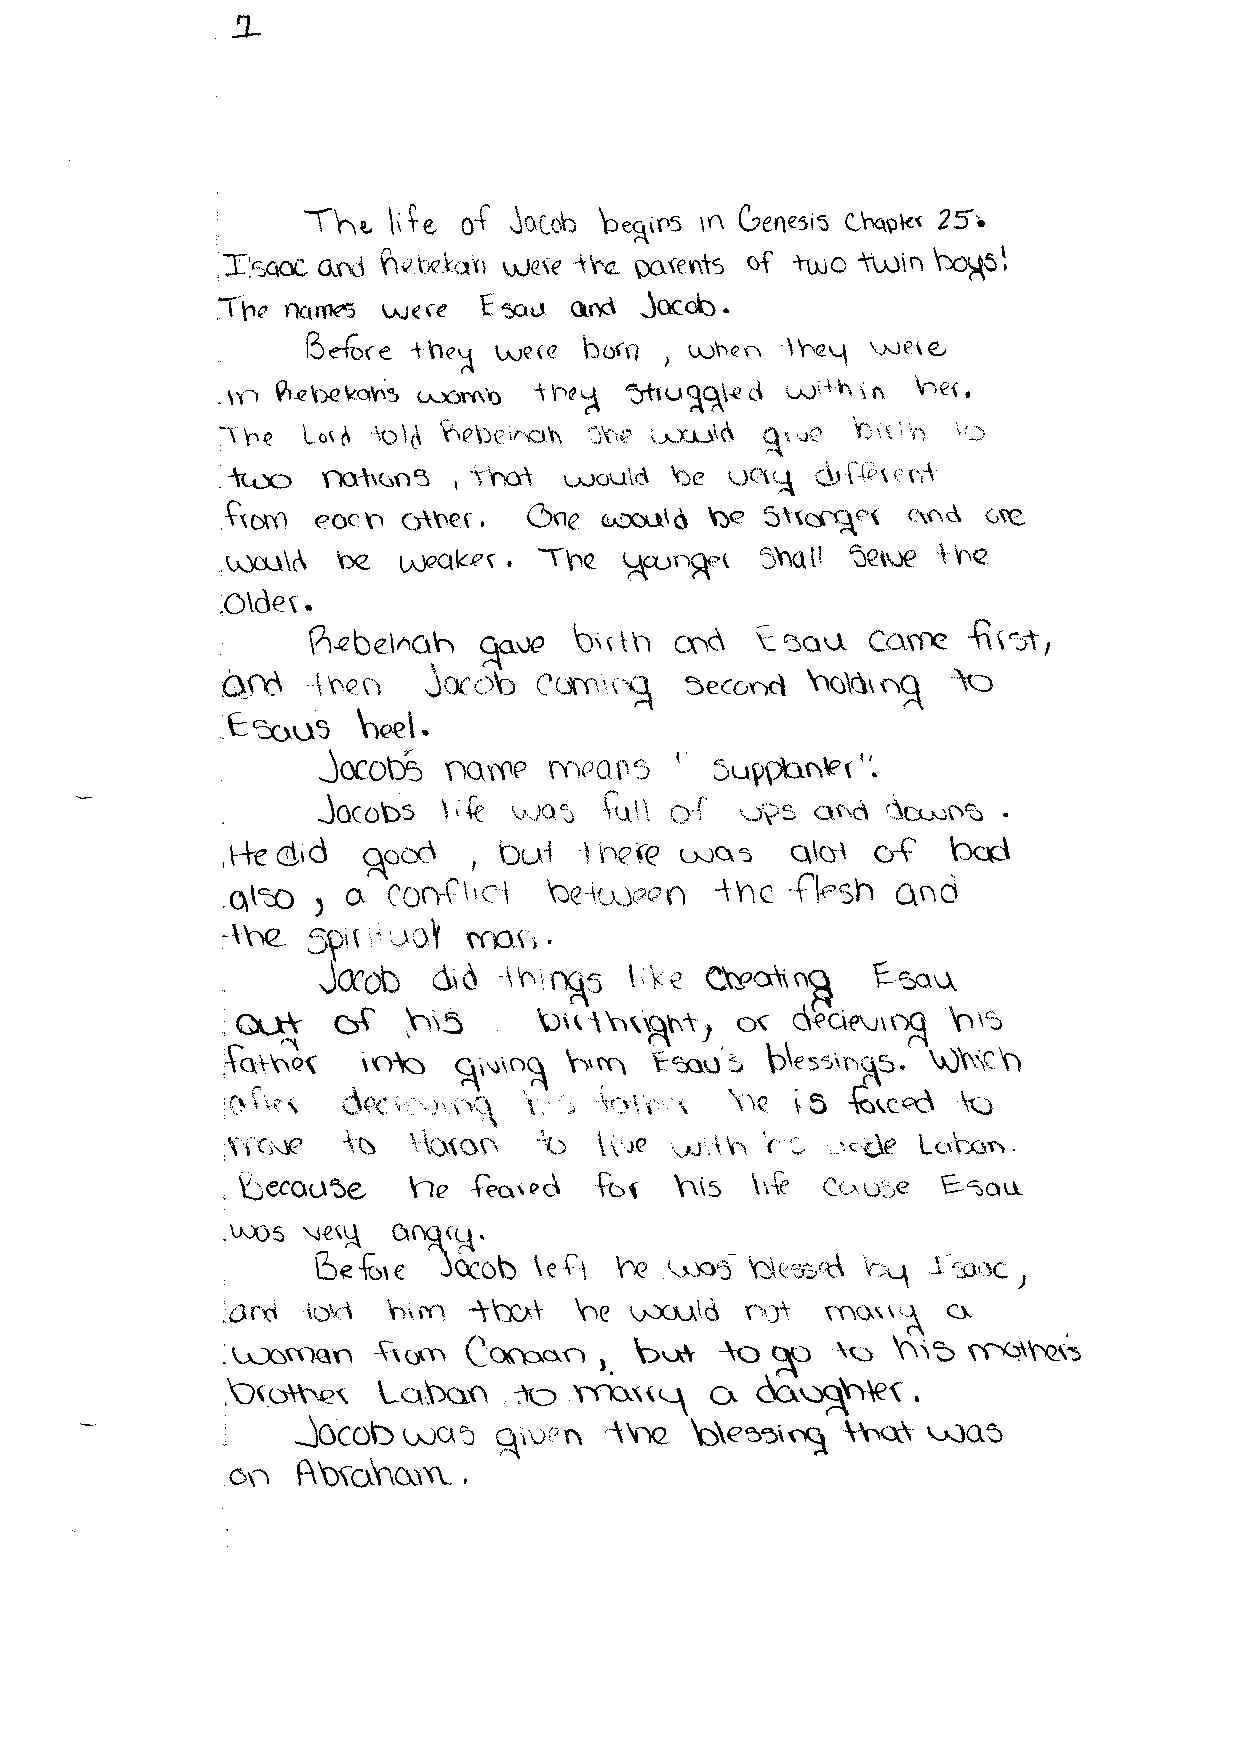 1
The life of Jacob begins in Genesis Chapter 25.
Isaac and Rebekah were the parents of two twin boys!
The names were Esau and Jacob.
Before they were born, when they were
in Rebekah's womb they struggled within her.
The Lord told Rebekah She would give birth to
two nations, that would be very different
from each other. One would be Stronger and one
would be weaker. The younger Shall Serve the
Older.
Rebekah gave birth and Esau came first,
and then Jacob coming second holding to
Esaus heel.
Jacob's name means "Supplanter".
Jacobs life was full of ups and downs.
He did good, but there was alot of bad
also, a conflict between the flesh and
the spiritual man.
Jacob did things like Cheating Esau
out of his birthright, or decieving his
father into giving him Esau's blessings. Which
after decieving his father he is forced to
move to Haran to live with his uncle Laban.
Because he feared for his life cause Esau
was very angry.
Before Jacob left he was blessed by Isaac,
and told him that he would not marry a
woman from Canaan, but to go to his mother's
brother Laban to marry a daughter.
Jacob was given the blessing that was
on Abraham.